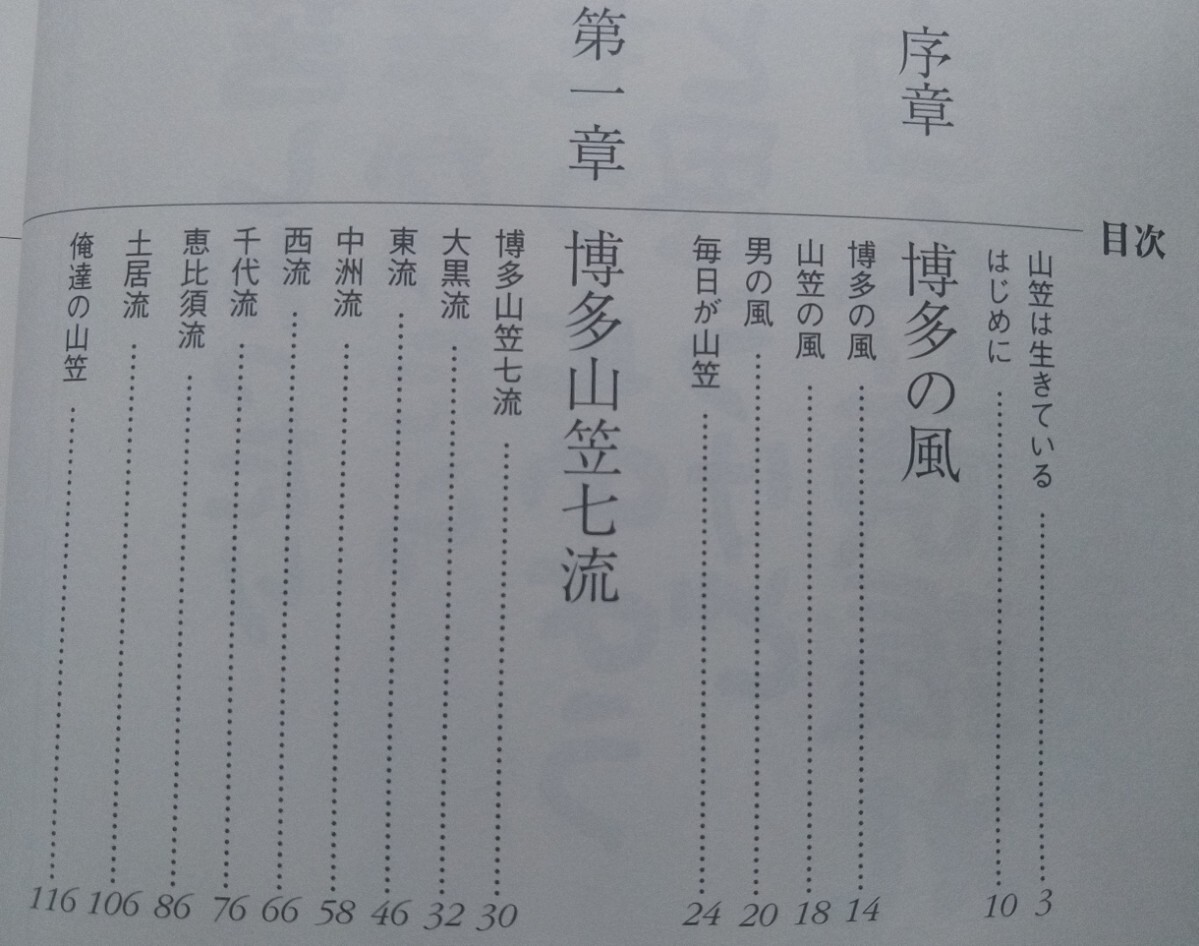 目次
山笠は生きている 3
はじめに 10
序章 博多の風
博多の風 14
山笠の風 18
男の風 20
毎日が山笠 24
第一章 博多山笠七流
博多山笠七流 30
大黒流 32
東流 46
中洲流 58
西流 66
千代流 76
恵比須流 86
土居流 106
俺達の山笠 116